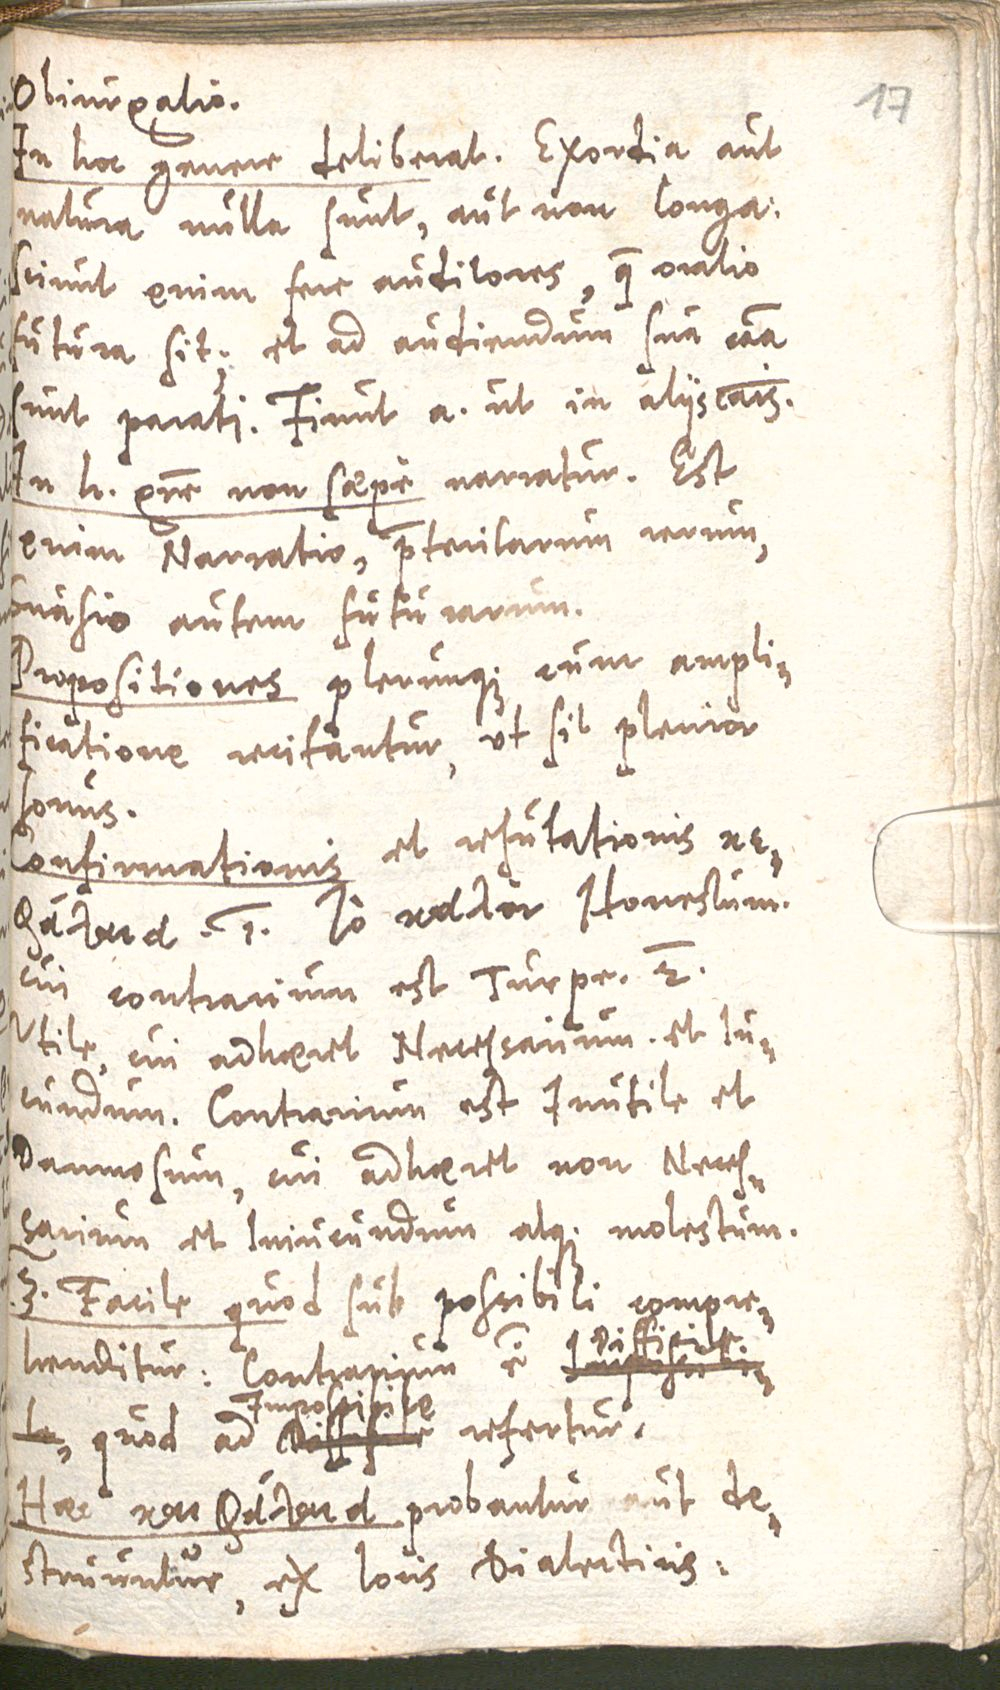 17
Obiurgatio.
In hoc genere deliberat. Exordia aut
natura nulla sunt, aut non longa:
Sciunt enim fere auditores, q̃ oratio
futura sit; et ad audiendum sua cãa
sunt parati. Fiunt a. ut in alijs cãis.
In h. gñe non sæpè narratur. Est
enim Narratio, p̃teritarum rerum,
Suasio autem futurarum.
Propositiones plerunq; cum ampli„
ficatione recitantur, ut sit plenior
sonus.
Confirmationis et refutationis κε„
φάλαια. 1. Τὸ καλὸν Honestum.
cui contrarium est Turpe. 2.
Utile, cui adhæret Necessarium. et Iu„
cundum. Contrarium est Inutile et
Damnosum, cui adhæret non Neces„
sarium et Iniucundum atq; molestum.
3. Facile quod sub possibili compre„
henditur: Contrarium ẽ Difficile.
quod ad Impossibile refertur.
Hæc κεφάλαια probantur aut de„
struuntur, ex locis Dialecticis: